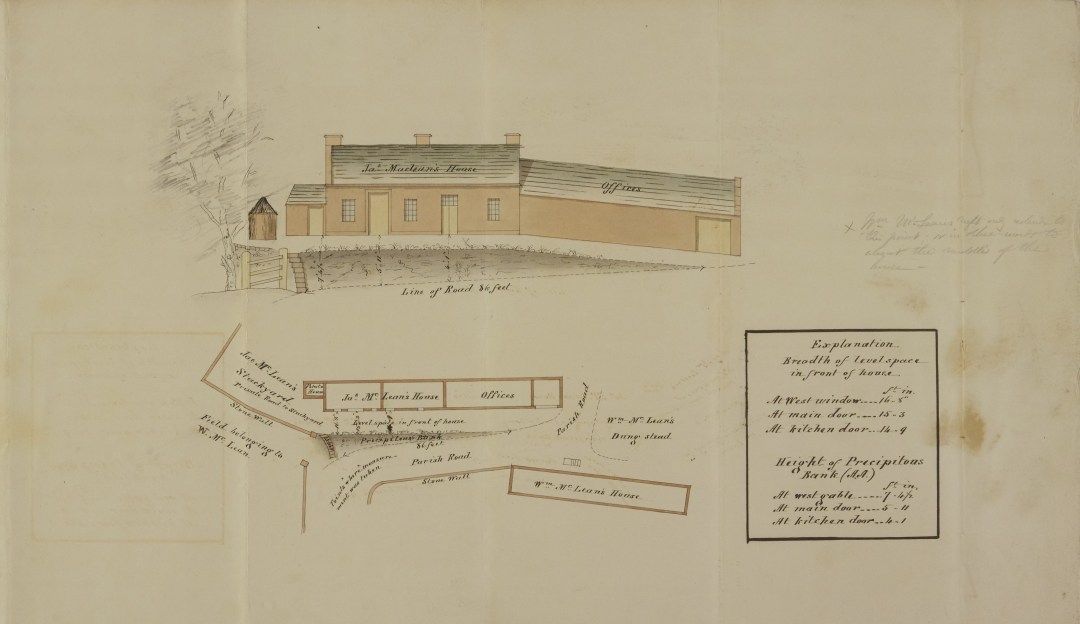 Jas. Maclean's House
Offices
7-4½
5-11
4-1
Line of Road 86 feet
x Wm. McLean's
the point
about the middle of the
house
Jas. Mc.Lean's
Stackyard
Private Road to Stackyard
Stone Wall
Field belonging to
W. Mc.Lean.
House
Jas. Mc.Lean's House
Offices
Level space in front of house
Precipitous Bank
86 feet
Parish Road
Points where measure-
ment was taken
Stone Wall
Parish Road
Wm. Mc.Lean's
Dung stead
Wm. Mc.Lean's House
Explanation
Breadth of level space
in front of house
ft. in.
At West window---16-8
At main door----15-3
At kitchen door--14-9
Height of Precipitous
Bank (AA)
ft. in.
At west gable-----7-4½
At main door----5-11
At kitchen door--4-1